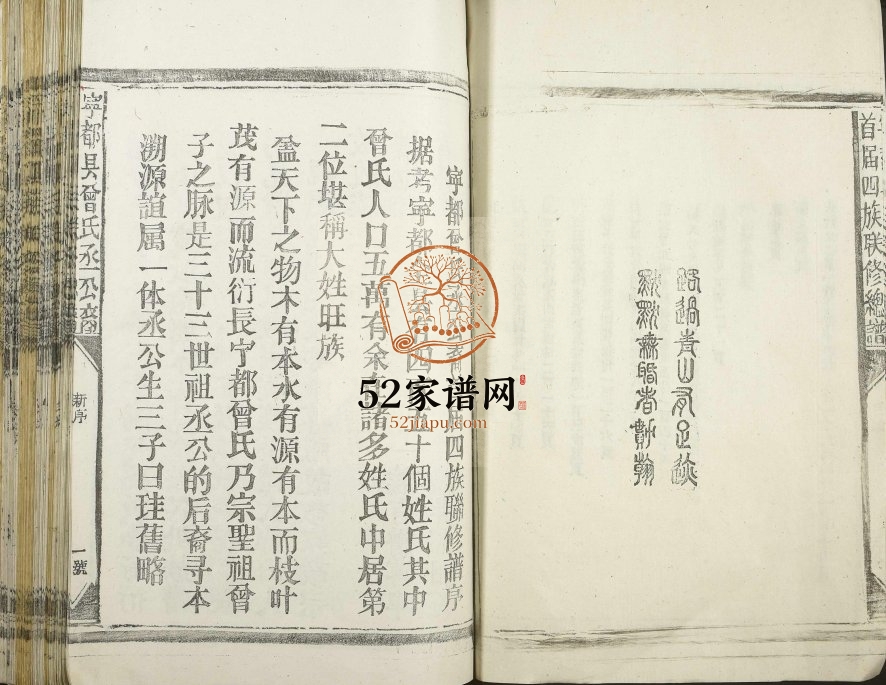 首届四族联修總譜
路過青山
寧都四族聯修譜序
据考寧都五十個姓氏其中
曾氏人口五萬有余諸多姓氏中居第
二位堪稱大姓旺族
盈天下之物木有本水有源有本而枝叶
茂有源而流衍長宁都曾氏乃宗聖祖曾
子之脉是三十三世祖丞公的后裔寻本
溯源誼属一体丞公生三子曰珪舊略
寧都县曾氏丞公裔
新序
一號
52家谱网
52jiapu.com